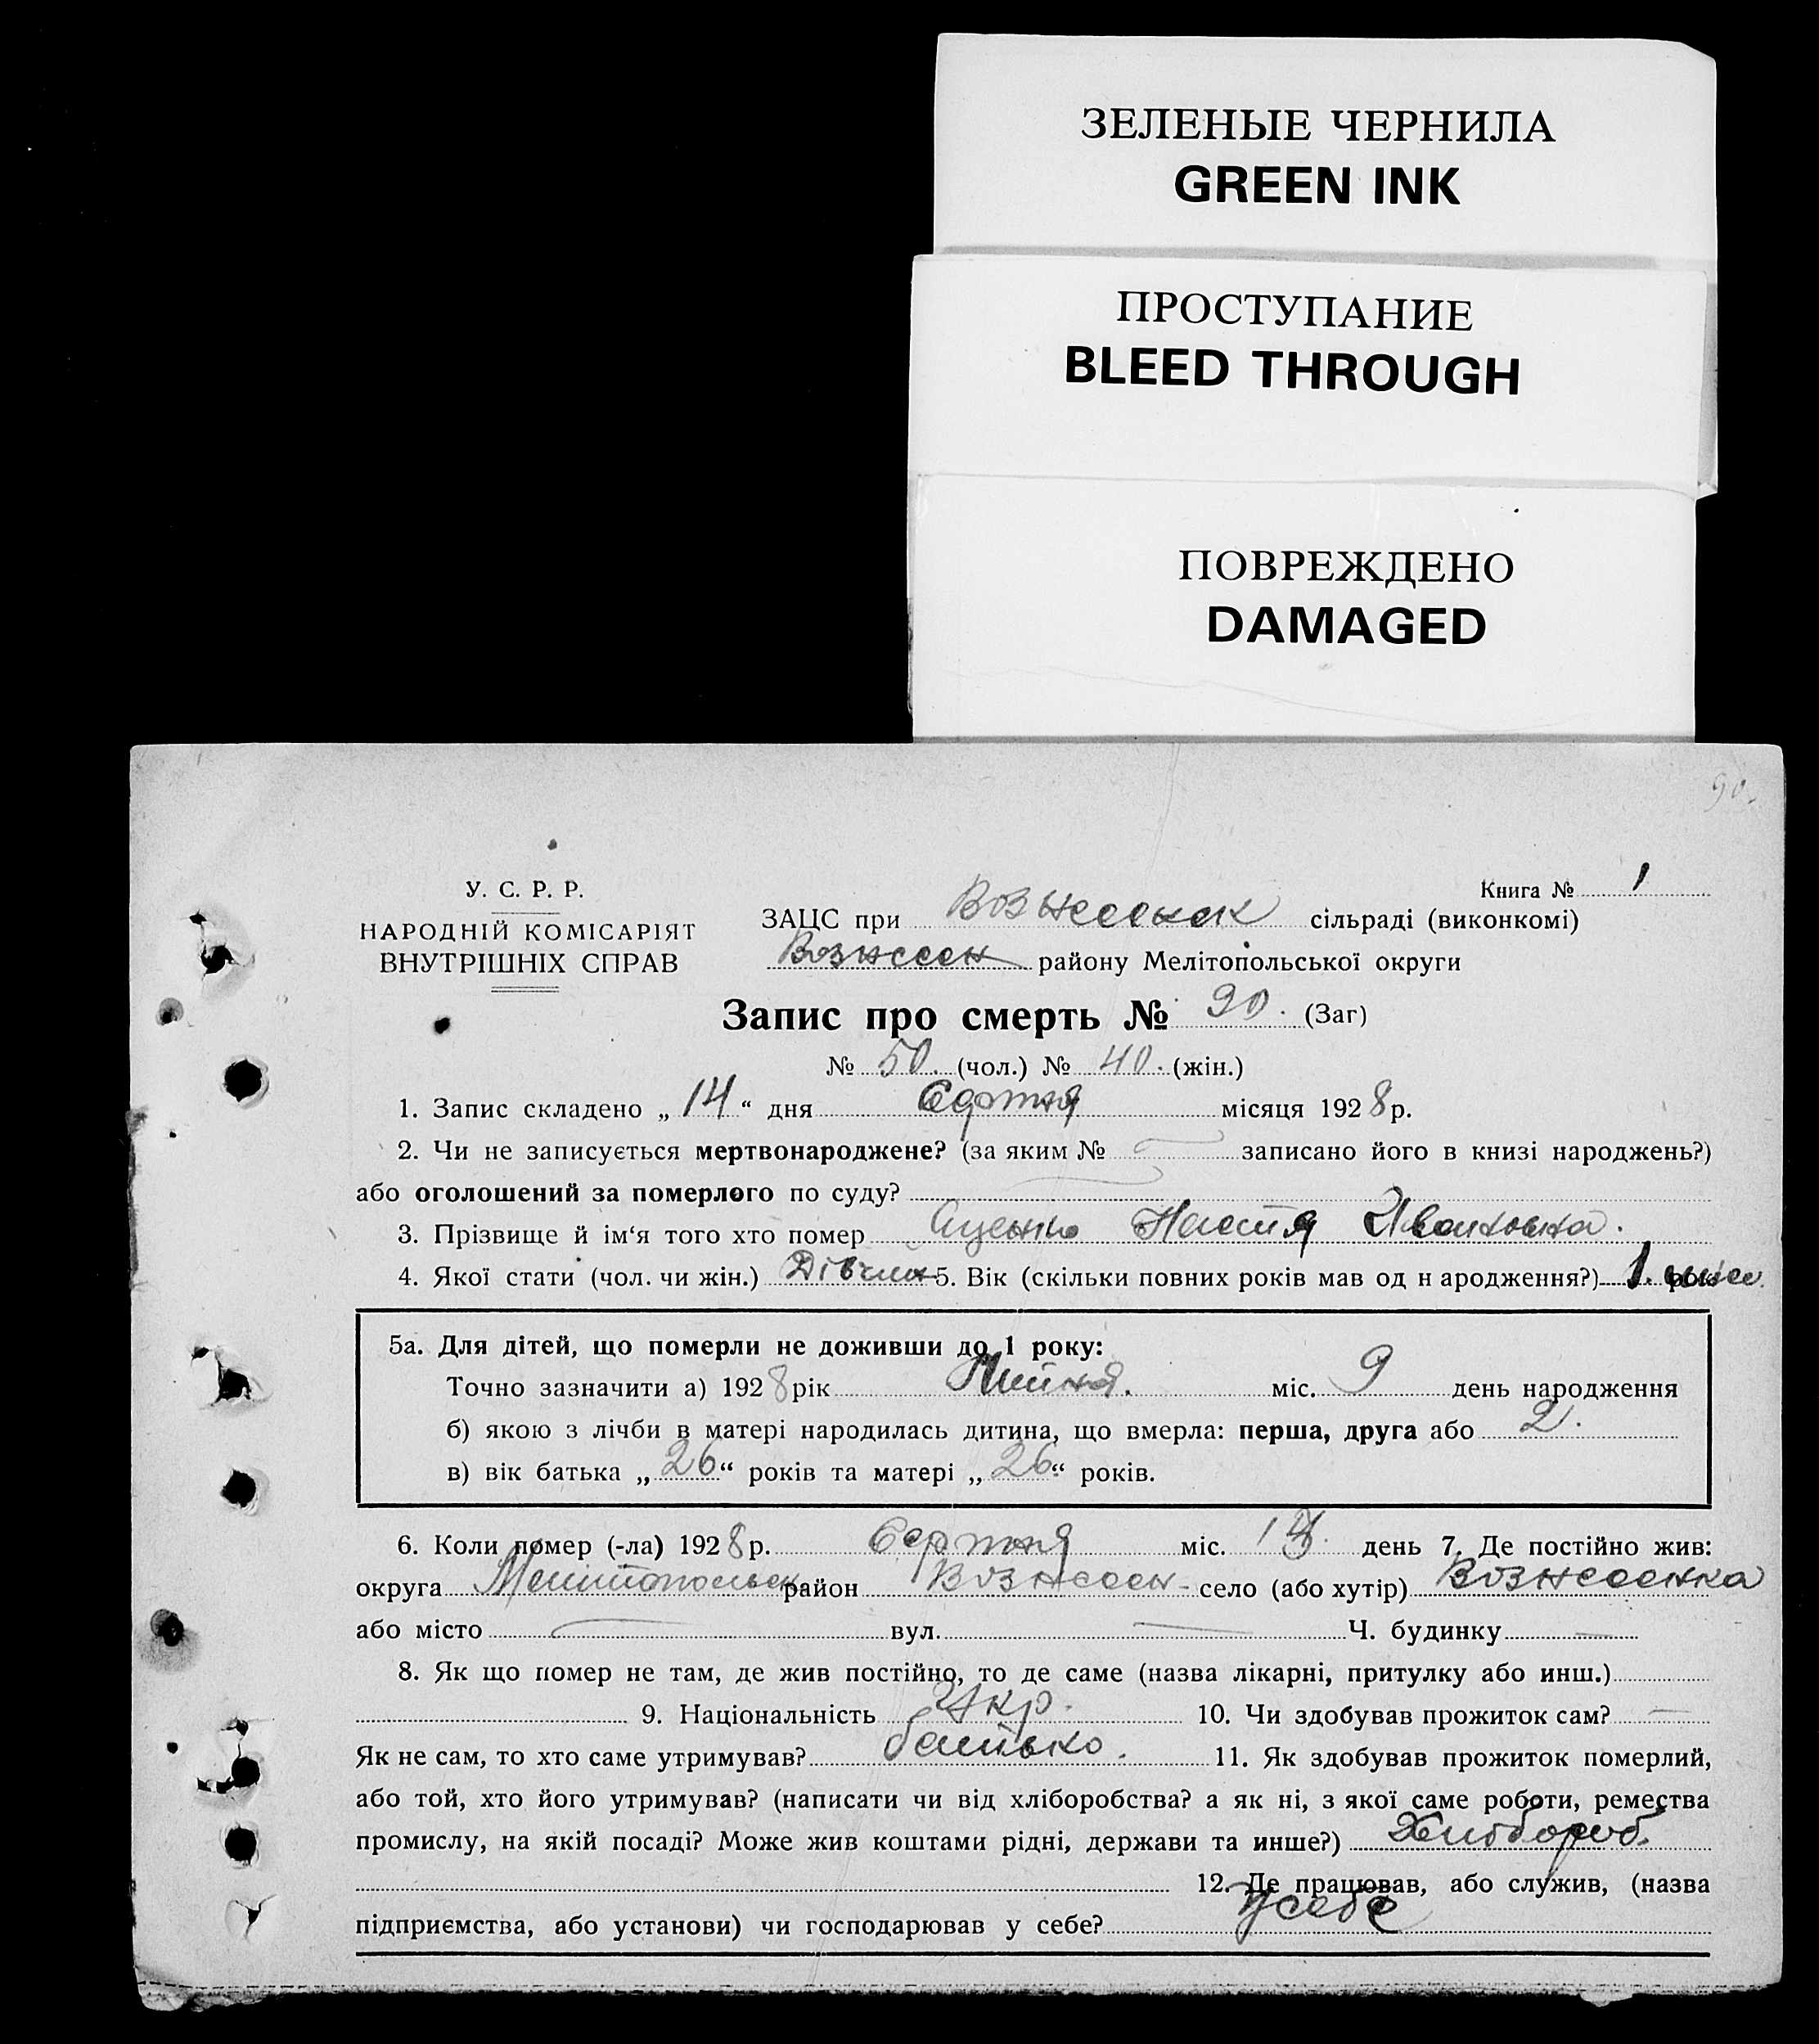 ЗЕЛЕНЫЕ ЧЕРНИЛА
GREEN INK
ПРОСТУПАНИЕ
BLEED THROUGH
ПОВРЕЖДЕНО
DAMAGED
90.
У. С. Р. Р.
НАРОДНІЙ КОМІСАРІЯТ
ВНУТРІШНІХ СПРАВ
Книга № 1
ЗАЦС при Вознесенск сільраді (виконкомі)
Вознесен району Мелітопольської округи
Запис про смерть № 90. (Заг)
№ 50. (чол.) № 40. (жін.)
1. Запис складено „ 14 “ дня Серпня місяця 1928 р.
2. Чи не записується мертвонароджене? (за яким № записано його в книзі народжень?)
або оголошений за померлого по суду?
3. Прізвище й ім‘я того хто помер Яценко Настя Ивановна.
4. Якої стати (чол. чи жін.) Дівчина 5. Вік (скільки повних років мав од н ародження?) 1.
5а. Для дітей, що померли не доживши до 1 року:
Точно зазначити а) 1928 рік міс. 9 день народження
б) якою з лічби в матері народилась дитина, що вмерла: перша, друга або 2.
в) вік батька „ 26 “ років та матері „ 26 “ років.
6. Коли помер (-ла) 1928 р. Серпня міс. 13. день 7. Де постійно жив:
округа Мелитопольск район Вознесен- село (або хутір) Вознесенка
або місто — вул. — Ч. будинку —
8. Як що помер не там, де жив постійно, то де саме (назва лікарні, притулку або инш.)
9. Національність Укр. 10. Чи здобував прожиток сам? —
Як не сам, то хто саме утримував? батько. 11. Як здобував прожиток померлий,
або той, хто його утримував? (написати чи від хліборобства? а як ні, з якої саме роботи, ремества
промислу, на якій посаді? Може жив коштами рідні, держави та инше?) Хлібороб.
12. Де працював, або служив, (назва
підприємства, або установи) чи господарював у себе? У себе